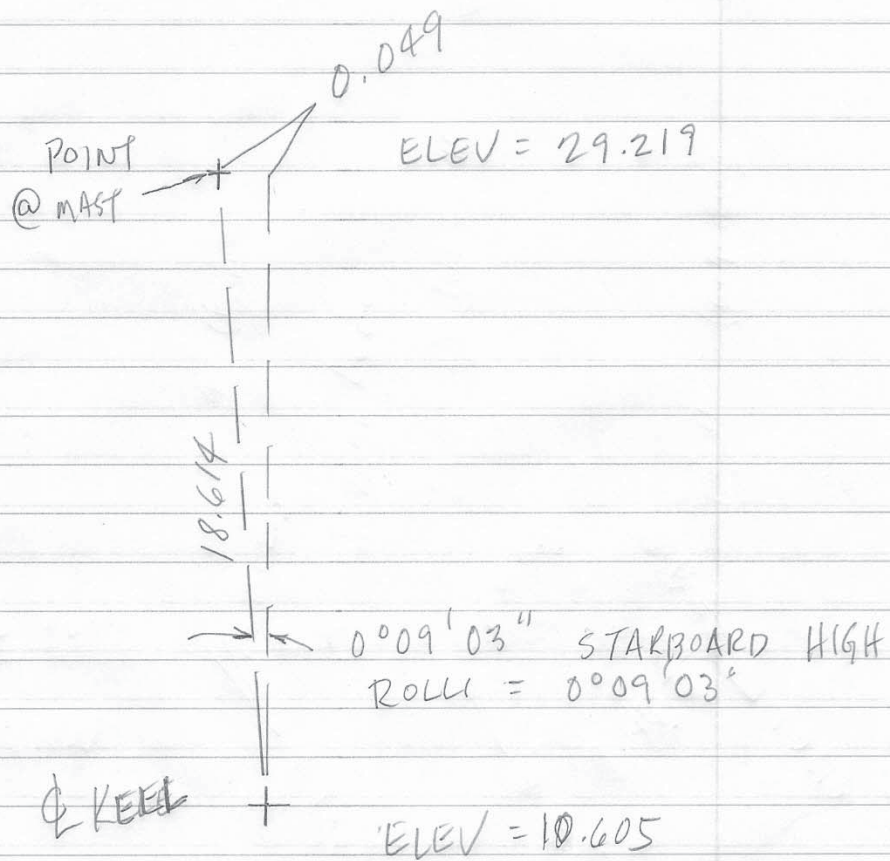 0.049
POINT
@ MAST
ELEV = 29.219
18.614
0°09'03" STARBOARD HIGH
ROLL = 0°09'03"
℄ KEEL
ELEV = 10.605